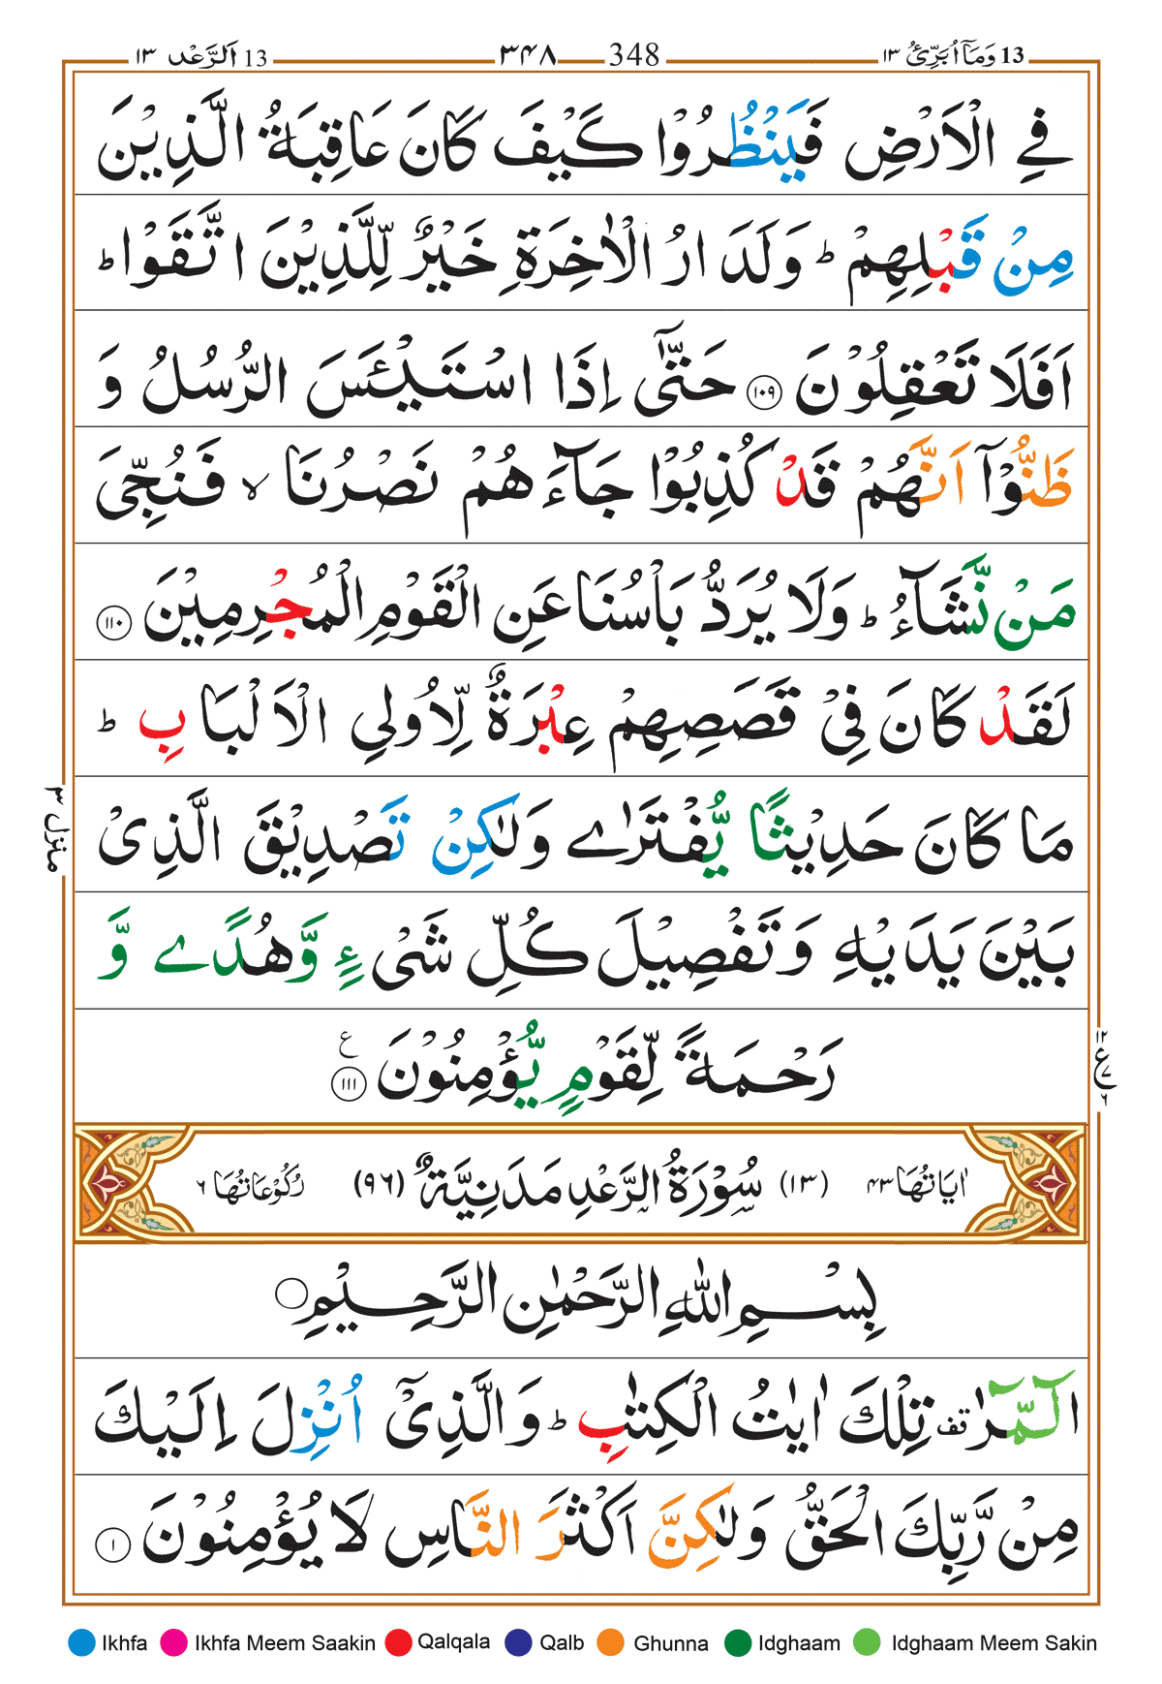 13 اَلرَّعْد ١٣ ٣٤٨ 348 13 وَمَآ اُبَرِّئُ ١٣
فِي الْاَرْضِ فَيَنْظُرُوْا كَيْفَ كَانَ عَاقِبَةُ الَّذِيْنَ
مِنْ قَبْلِهِمْ ؕ وَلَدَارُ الْاٰخِرَةِ خَيْرٌ لِّلَّذِيْنَ اتَّقَوْا ؕ
اَفَلَا تَعْقِلُوْنَ ۝١٠٩ حَتّٰٓى اِذَا اسْتَيْئَسَ الرُّسُلُ وَ
ظَنُّوْٓا اَنَّهُمْ قَدْ كُذِبُوْا جَآءَهُمْ نَصْرُنَا ۙ فَنُجِّىَ
مَنْ نَّشَآءُ ؕ وَلَا يُرَدُّ بَاْسُنَا عَنِ الْقَوْمِ الْمُجْرِمِيْنَ ۝١١٠
لَقَدْ كَانَ فِيْ قَصَصِهِمْ عِبْرَةٌ لِّاُولِي الْاَلْبَابِ ؕ
مَا كَانَ حَدِيْثًا يُّفْتَرٰے وَلٰكِنْ تَصْدِيْقَ الَّذِيْ
منزل ٣
بَيْنَ يَدَيْهِ وَتَفْصِيْلَ كُلِّ شَيْءٍ وَّهُدًے وَّ
رَحْمَةً لِّقَوْمٍ يُّؤْمِنُوْنَ ۝١١١ ع
١٢ ع ٧ ٦
اٰيَاتُهَا ٤٣ (١٣) سُوْرَةُ الرَّعْدِ مَدَنِيَّةٌ (٩٦) رُكُوْعَاتُهَا ٦
بِسْمِ اللهِ الرَّحْمٰنِ الرَّحِيْمِ ۝
الٓمّٓرٰ قف تِلْكَ اٰيٰتُ الْكِتٰبِ ؕ وَالَّذِيْٓ اُنْزِلَ اِلَيْكَ
مِنْ رَّبِّكَ الْحَقُّ وَلٰكِنَّ اَكْثَرَ النَّاسِ لَا يُؤْمِنُوْنَ ۝١
Ikhfa Ikhfa Meem Saakin Qalqala Qalb Ghunna Idghaam Idghaam Meem Sakin